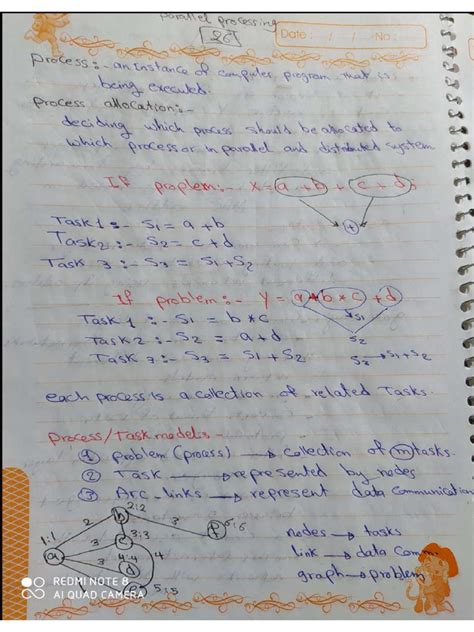 Parallel processing
Date: / / No:
Process:- an instance of computer program that is
being executed.
process allocation:-
deciding which process should be allocated to
which processor in parallel and distributed system
If proplem:- x = a + b + c + d
+
Task 1:- S1 = a + b
Task 2:- S2 = c + d
Task 3:- S3 = S1 + S2
If problem:- y = a * b * c + d
Task 1:- S1 = b * c
S1
Task 2:- S2 = a + d
S2
Task 3:- S3 = S1 + S2
S3 → S1 + S2
each process is a collection of related Tasks.
process/Task models:-
① problem (process) → collection of m tasks.
② Task → represented by nodes
③ Arc-links → represent data communication
b 2:2
2
3
f 6:6
nodes → tasks
1:1
a
3
c 3:3
4
link → data Comm.
3
4:4
d
graph → problem
5:5
REDMI NOTE 8
AI QUAD CAMERA